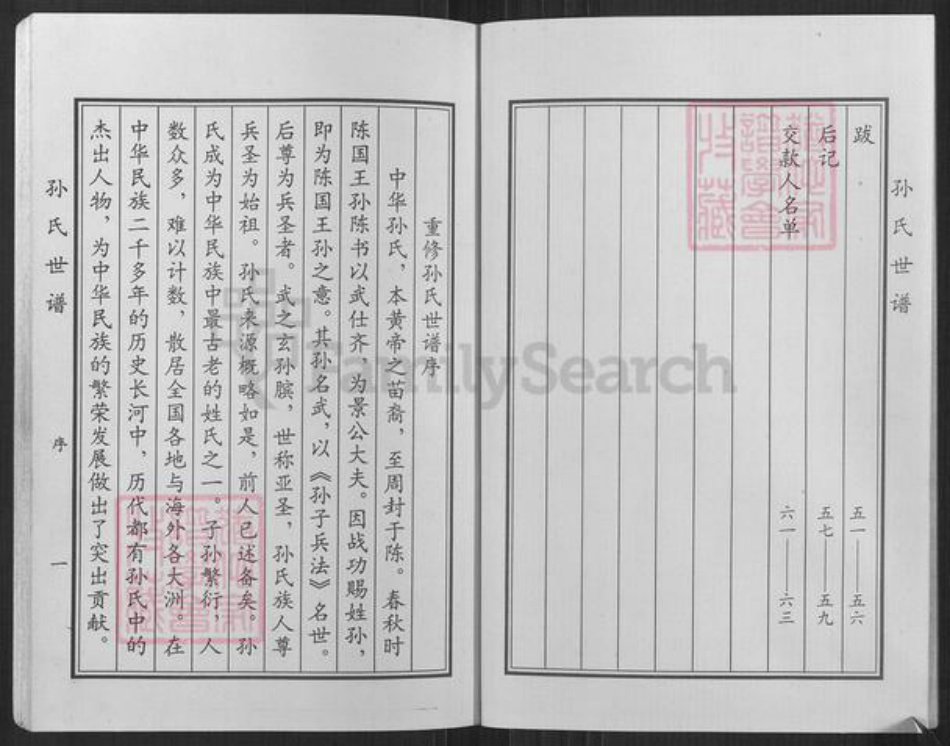 孙氏世谱
跋 五一——五六
后记 五七——五九
交款人名单 六一——六三
重修孙氏世谱序
中华孙氏，本黄帝之苗裔，至周封于陈。春秋时
陈国王孙陈书以武仕齐，为景公大夫。因战功赐姓孙，
即为陈国王孙之意。其孙名武，以《孙子兵法》名世。
后尊为兵圣者。武之玄孙膑，世称亚圣，孙氏族人尊
兵圣为始祖。孙氏来源概略如是，前人已述备矣。孙
氏成为中华民族中最古老的姓氏之一。子孙繁衍，人
数众多，难以计数，散居全国各地与海外各大洲。在
中华民族二千多年的历史长河中，历代都有孙氏中的
杰出人物，为中华民族的繁荣发展做出了突出贡献。
孙氏世谱 序 一
FamilySearch